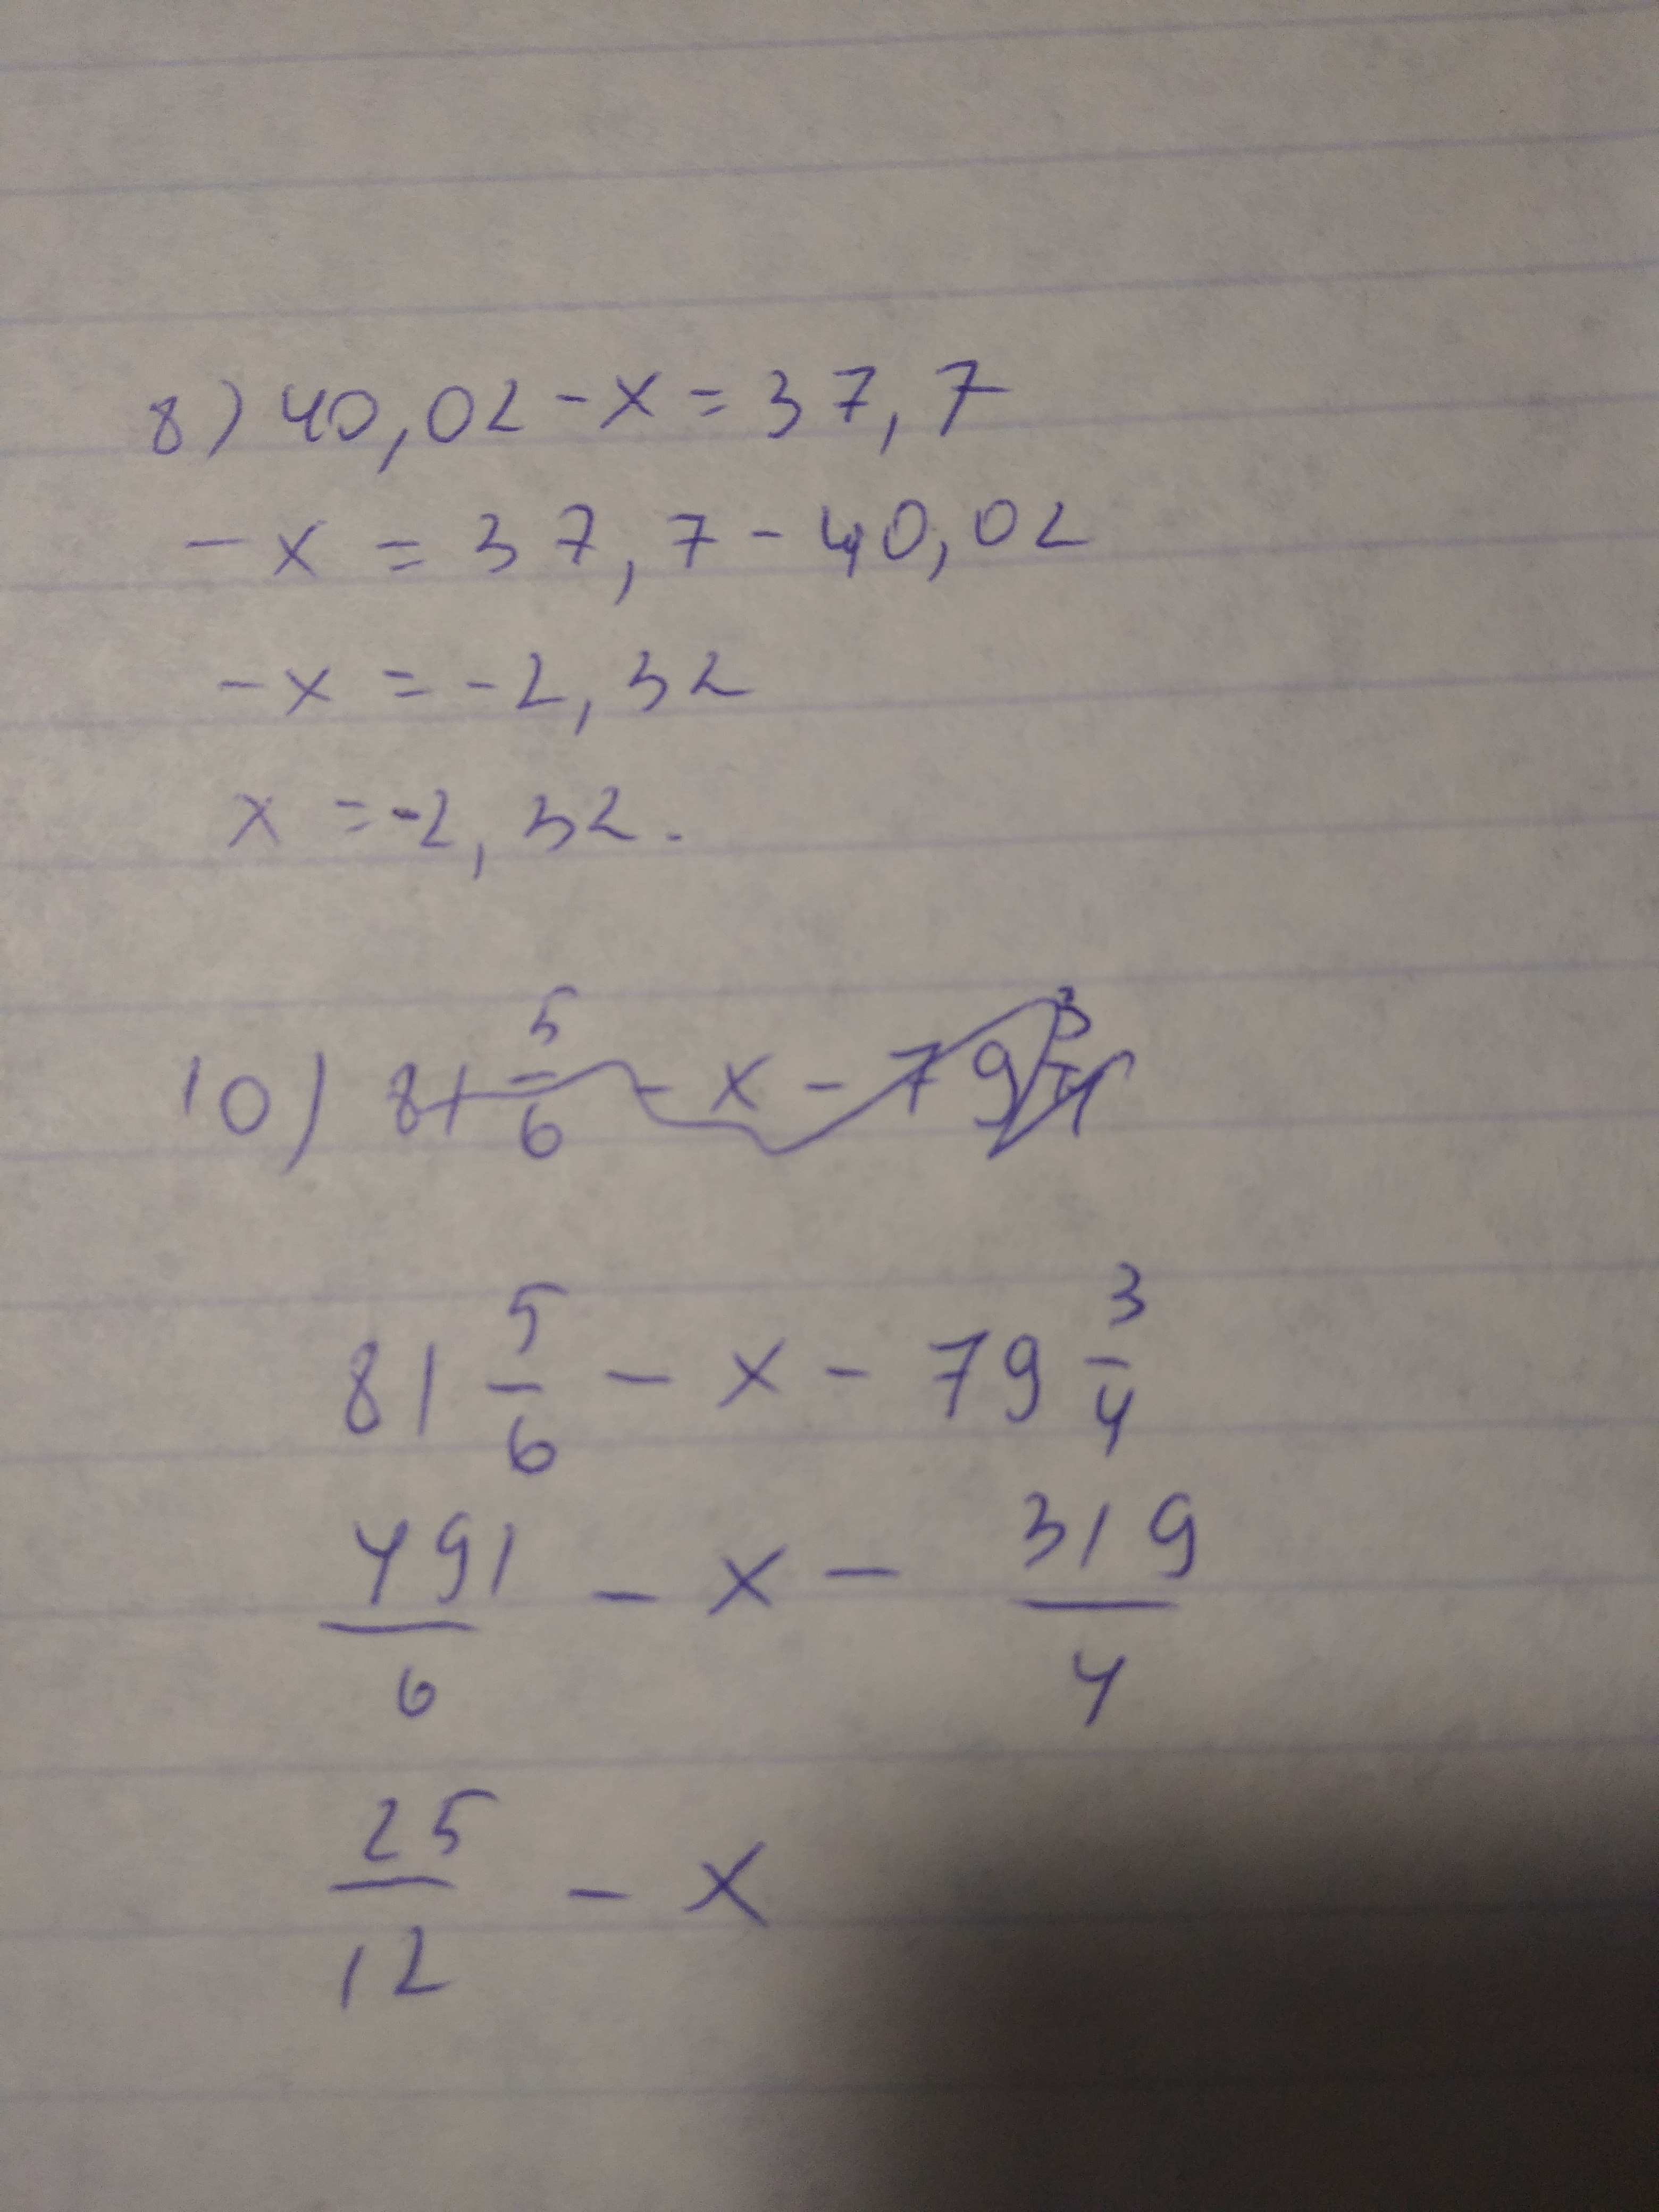 8) 40,02 - x = 37,7
- x = 37,7 - 40,02
- x = -2,32
x = -2,32.
10) 81 5/6 - x - 79 3/4
81 5/6 - x - 79 3/4
491/6 - x - 319/4
25/12 - x